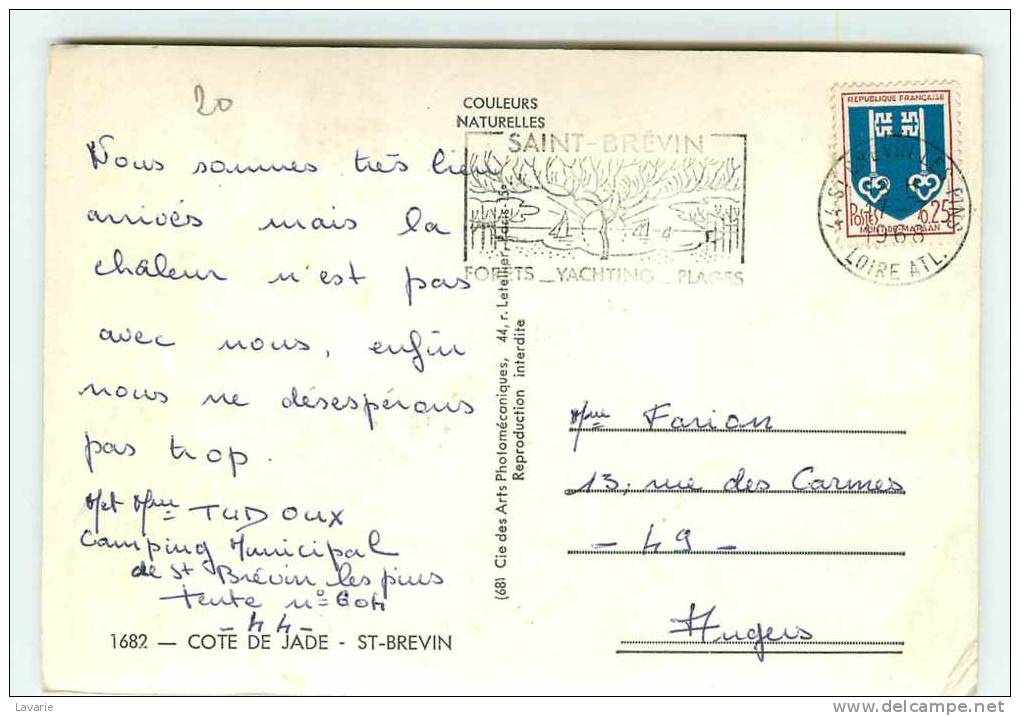 20
COULEURS
NATURELLES
Nous sommes très bien
arrivés mais la
châleur n'est pas
avec nous, enfin
nous ne désespérons
pas trop.
M et Mme TUDOUX
Camping Municipal
de St Brévin les pins
Tente n°
- 44 -
1682 — COTE DE JADE - ST-BREVIN
(68) Cie des Arts Photomécaniques, 44, r. Letellier, Paris-15e
Reproduction interdite
SAINT-BRÉVIN
FORÊTS _ YACHTING _ PLAGES
REPUBLIQUE FRANÇAISE
POSTES 0,25
MONT-DE-MARSAN
44 ST BREVIN LES PINS
1968
LOIRE ATL.
Mme Farion
13, rue des Carmes
- 49 -
Angers
Lavarie
http://www.delcampe.net